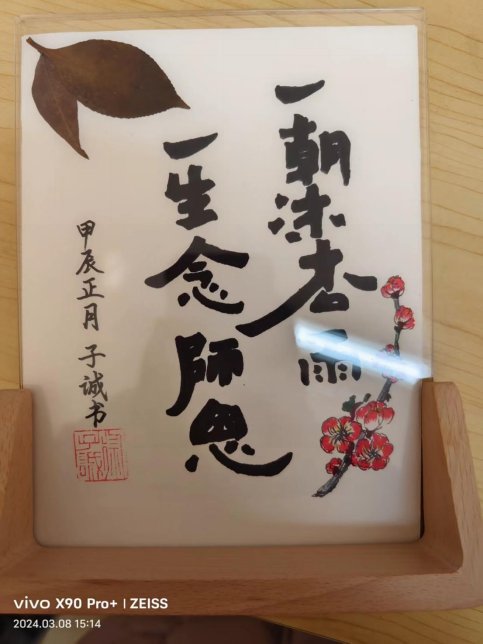 一朝沐杏雨
一生念師恩
甲辰正月 子诚书
vivo X90 Pro+ | ZEISS
2024.03.08 15:14